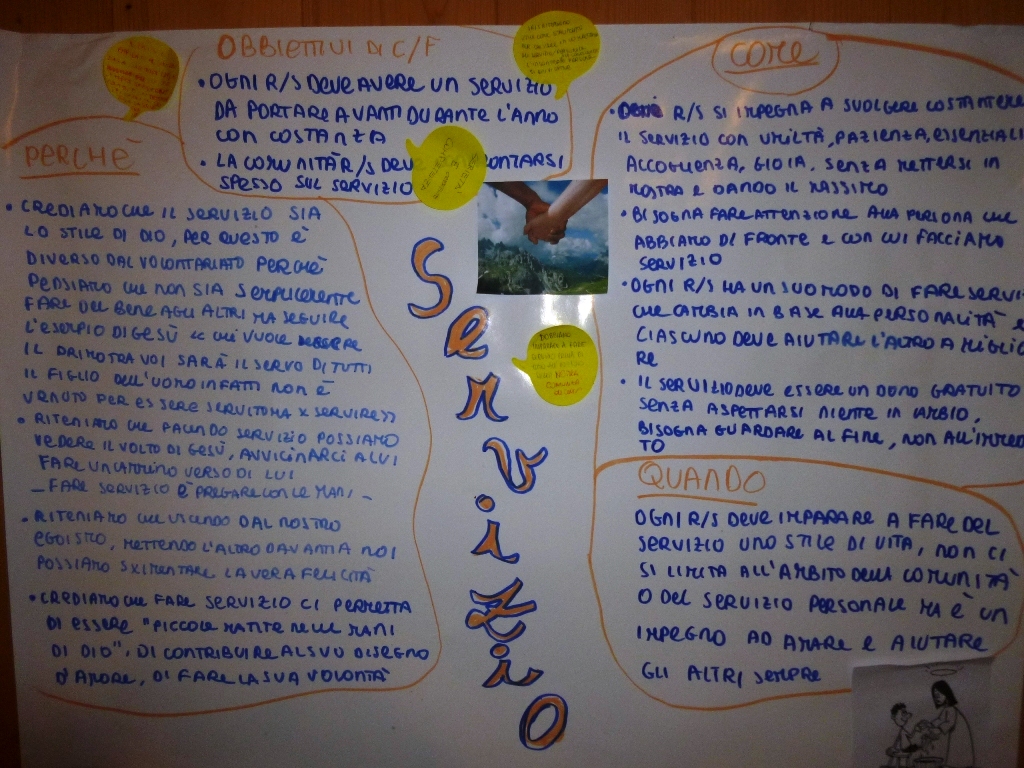 OBBIETTIVI DI C/F
• OGNI R/S DEVE AVERE UN SERVIZIO
DA PORTARE AVANTI DURANTE L'ANNO
CON COSTANZA
• LA COMUNITÀ R/S DEVE ONTARSI
SPESSO SUL SERVIZIO
PERCHÈ
• CREDIAMO CHE IL SERVIZIO SIA
LO STILE DI DIO, PER QUESTO È
DIVERSO DAL VOLONTARIATO PERCHÈ
PENSIAMO CHE NON SIA SEMPLICEMENTE
FARE DEL BENE AGLI ALTRI MA SEGUIRE
L'ESEMPIO DI GESÙ << CHI VUOLE ESSERE
IL PRIMO TRA VOI SARÀ IL SERVO DI TUTTI
IL FIGLIO DELL'UOMO INFATTI NON È
VENUTO PER ESSERE SERVITO MA X SERVIRE>>
• RITENIAMO CHE FACENDO SERVIZIO POSSIAMO
VEDERE IL VOLTO DI GESÙ, AVVICINARCI A LUI
FARE UN CAMMINO VERSO DI LUI
_ FARE SERVIZIO È PREGARE CON LE MANI _
• RITENIAMO CHE USCENDO DAL NOSTRO
EGOISMO, METTENDO L'ALTRO DAVANTI A NOI
POSSIAMO SXIMENTARE LA VERA FELICITÀ
• CREDIAMO CHE FARE SERVIZIO CI PERMETTA
DI ESSERE "PICCOLE MATITE NELLE MANI
DI DIO", DI CONTRIBUIRE AL SUO DISEGNO
D'AMORE, DI FARE LA SUA VOLONTÀ
SERVIZIO
COME
• R/S SI IMPEGNA A SVOLGERE COSTANTEME
IL SERVIZIO CON UMILTÀ, PAZIENZA, ESSENZIALI
ACCOGLIENZA, GIOIA, SENZA METTERSI IN
MOSTRA E DANDO IL MASSIMO
• BISOGNA FARE ATTENZIONE ALLA PERSONA CHE
ABBIAMO DI FRONTE E CON CUI FACCIAMO
SERVIZIO
• OGNI R/S HA UN SUO MODO DI FARE SERVI
CHE CAMBIA IN BASE ALLA PERSONALITÀ E
CIASCUNO DEVE AIUTARE L'ALTRO A MIGLIO
RE
• IL SERVIZIO DEVE ESSERE UN DONO GRATUITO
SENZA ASPETTARSI NIENTE IN CAMBIO,
BISOGNA GUARDARE AL FINE, NON ALL'IMMED
TO
QUANDO
OGNI R/S DEVE IMPARARE A FARE DEL
SERVIZIO UNO STILE DI VITA, NON CI
SI LIMITA ALL'AMBITO DELLA COMUNITÀ
O DEL SERVIZIO PERSONALE MA È UN
IMPEGNO AD AMARE E AIUTARE
GLI ALTRI SEMPRE